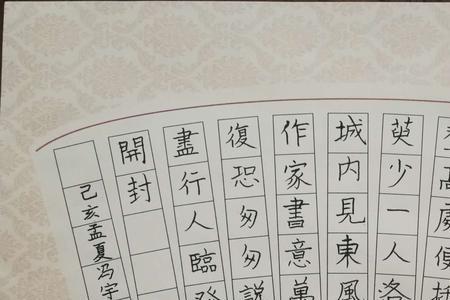 高處便
萸少一人洛
城内見東風
作家書意萬
復恐匆匆說
盡行人臨發
開封
己亥孟夏冯宇